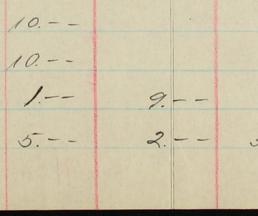 10.--
10.--
1.-- 9.--
5.-- 2.--